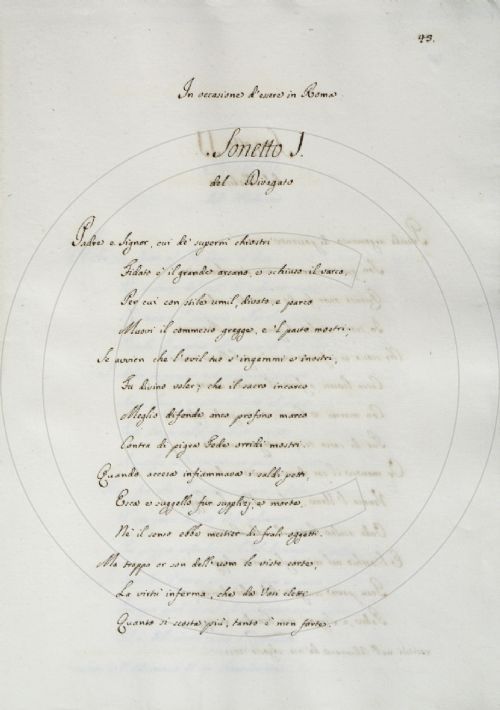 43.
In occasione d'essere in Roma
Sonetto I.
del Divegato
Padre e Signor, cui de' superni chiostri
Fidato è il grande arcano, e schiuso il varco,
Per cui con stile umil, divoto, e parco
Muovi il commesso gregge, e 'l pasto mostri;
Se avvien che l'ovil tuo s'ingemmi e inostri,
Fu divino voler; che il sacro incarco
Meglio difende anco profano marco
Contra di pigra Fede orridi mostri.
Quando accesa infiammava i saldi petti,
Esca e suggello fur supplizj, e morte,
Nè il senso ebbe mestier di frali oggetti.
Ma troppo or son dell'uom le viste corte,
La virtù inferma, che da' Vasi eletti
Quanto si scosta più, tanto è men forte.